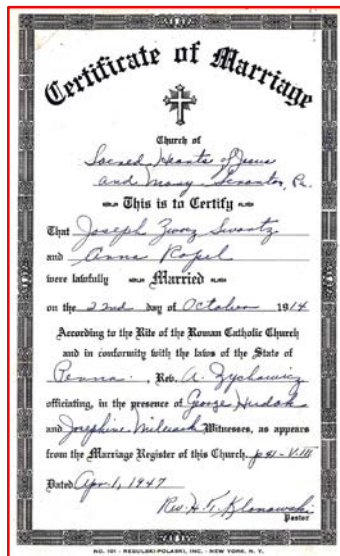 Certificate of Marriage
Church of
Sacred Hearts of Jesus
and Mary Scranton, Pa.
This is to Certify
That Joseph Zwarz Swartz
and Anna Kopel
were lawfully Married
on the 22nd day of October 1914
According to the Rite of the Roman Catholic Church
and in conformity with the laws of the State of
Penna., Rev. A. Zychowicz
officiating, in the presence of George Hudak
and Josephine Witnesses, as appears
from the Marriage Register of this Church. p 81 - V. III
Dated Apr. 1, 1947
Rev. H. Klonowski
Pastor
NO. 101 - REGULSKI-POLASKI, INC. - NEW YORK, N. Y.